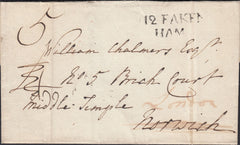 5
12 FAKEN
HAM
William Chalmers Esqr
No 5 Brick Court
Middle Temple
London
Norwich